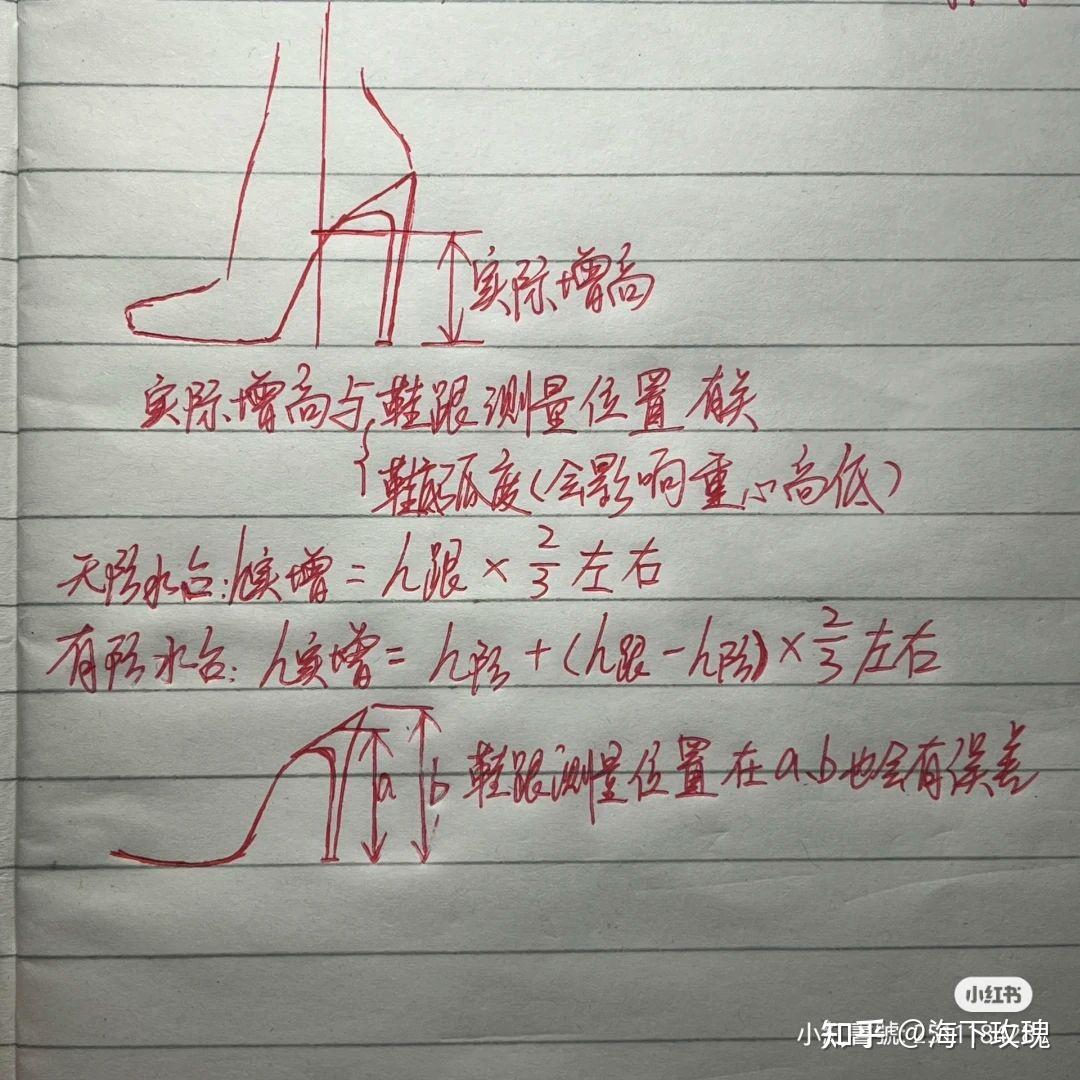 实际增高
实际增高与鞋跟测量位置有关
鞋底弧度(会影响重心高低)
无防水台:h实增 = h跟 × 2/3 左右
有防水台:h实增 = h防 + (h跟 - h防) × 2/3 左右
a b 鞋跟测量位置在a、b也会有误差
小红书
知乎 @海下玫瑰